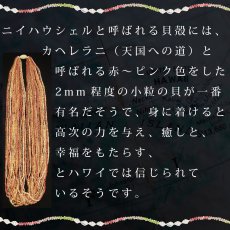 ニイハウシェルと呼ばれる貝殻には、
カヘレラニ（天国への道）と
呼ばれる赤～ピンク色をした
2mm程度の小粒の貝が一番
有名だそうで、身に着けると
高次の力を与え、癒しと、
幸福をもたらす、
とハワイでは信じられて
いるそうです。